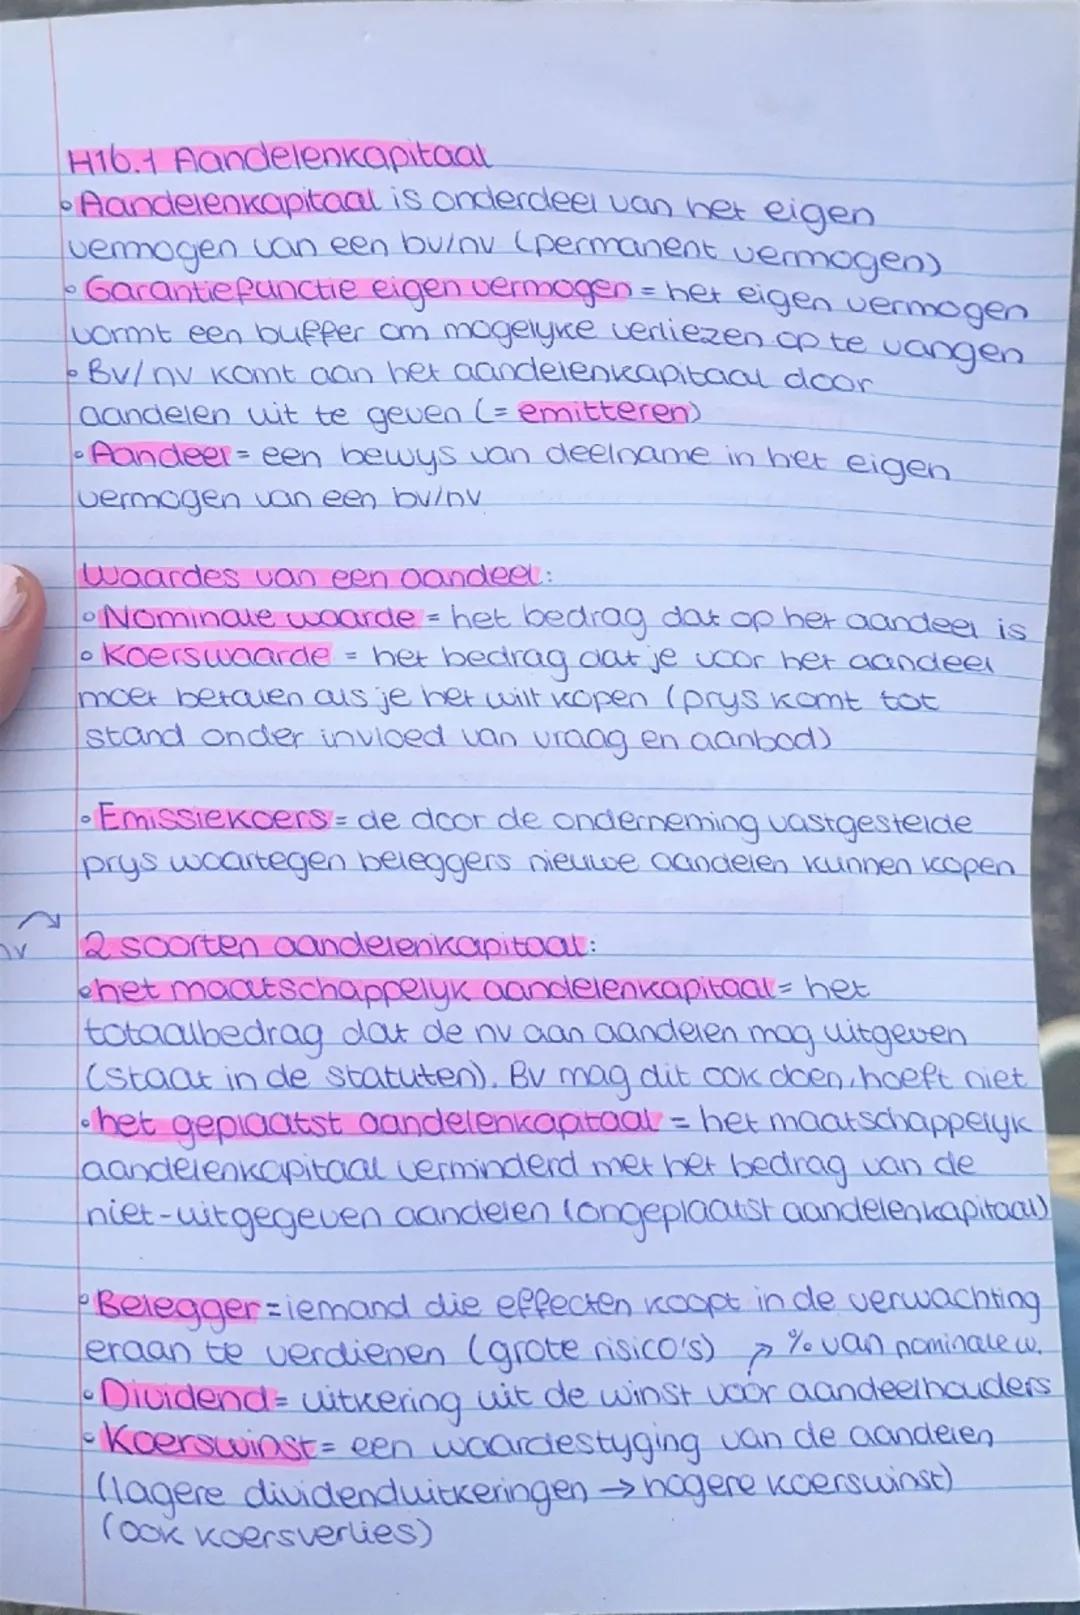 H16.1 Aandelenkapitaal
• Aandelenkapitaal is onderdeel van het eigen
vermogen van een bv/nv (permanent vermogen)
• Garantiefunctie eigen vermogen = het eigen vermogen
vormt een buffer om mogelyke verliezen op te vangen
• Bv/nv komt aan het aandelenkapitaal door
aandelen uit te geven (= emitteren)
• Aandeel = een bewys van deelname in het eigen
vermogen van een bv/nv
Waardes van een aandeel:
• Nominale waarde = het bedrag dat op het aandeel is
• Koerswaarde = het bedrag dat je voor het aandeel
moet betalen als je het wilt kopen (prys komt tot
stand onder invloed van vraag en aanbod)
• Emissiekoers = de door de onderneming vastgestelde
prys waartegen beleggers nieuwe aandelen kunnen kopen
nv
2 soorten aandelenkapitaal:
• het maatschappelyk aandelenkapitaal = het
totaalbedrag dat de nv aan aandelen mag uitgeven
(staat in de statuten). Bv mag dit ook doen, hoeft niet
• het geplaatst aandelenkapitaal = het maatschappelyk
aandelenkapitaal verminderd met het bedrag van de
niet-uitgegeven aandelen (ongeplaatst aandelenkapitaal)
• Belegger = iemand die effecten koopt in de verwachting
eraan te verdienen (grote risico's) ↗ % van nominale w.
• Dividend = uitkering uit de winst voor aandeelhouders
• Koerswinst = een waardestyging van de aandelen
(lagere dividenduitkeringen → hogere koerswinst)
(ook koersverlies)